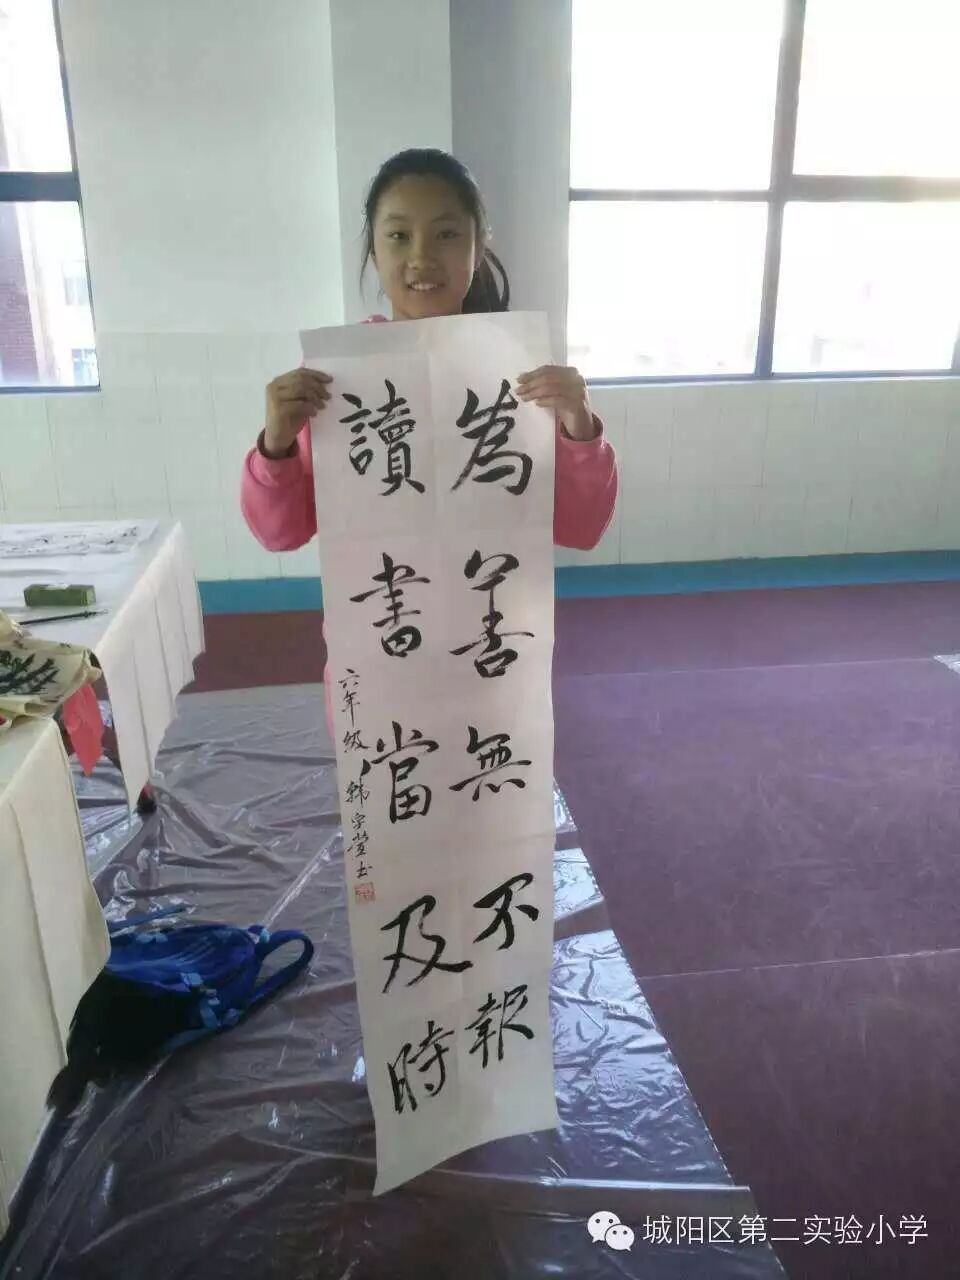 為善無不報
讀書當及時
六年級韩宇萱书
城阳区第二实验小学